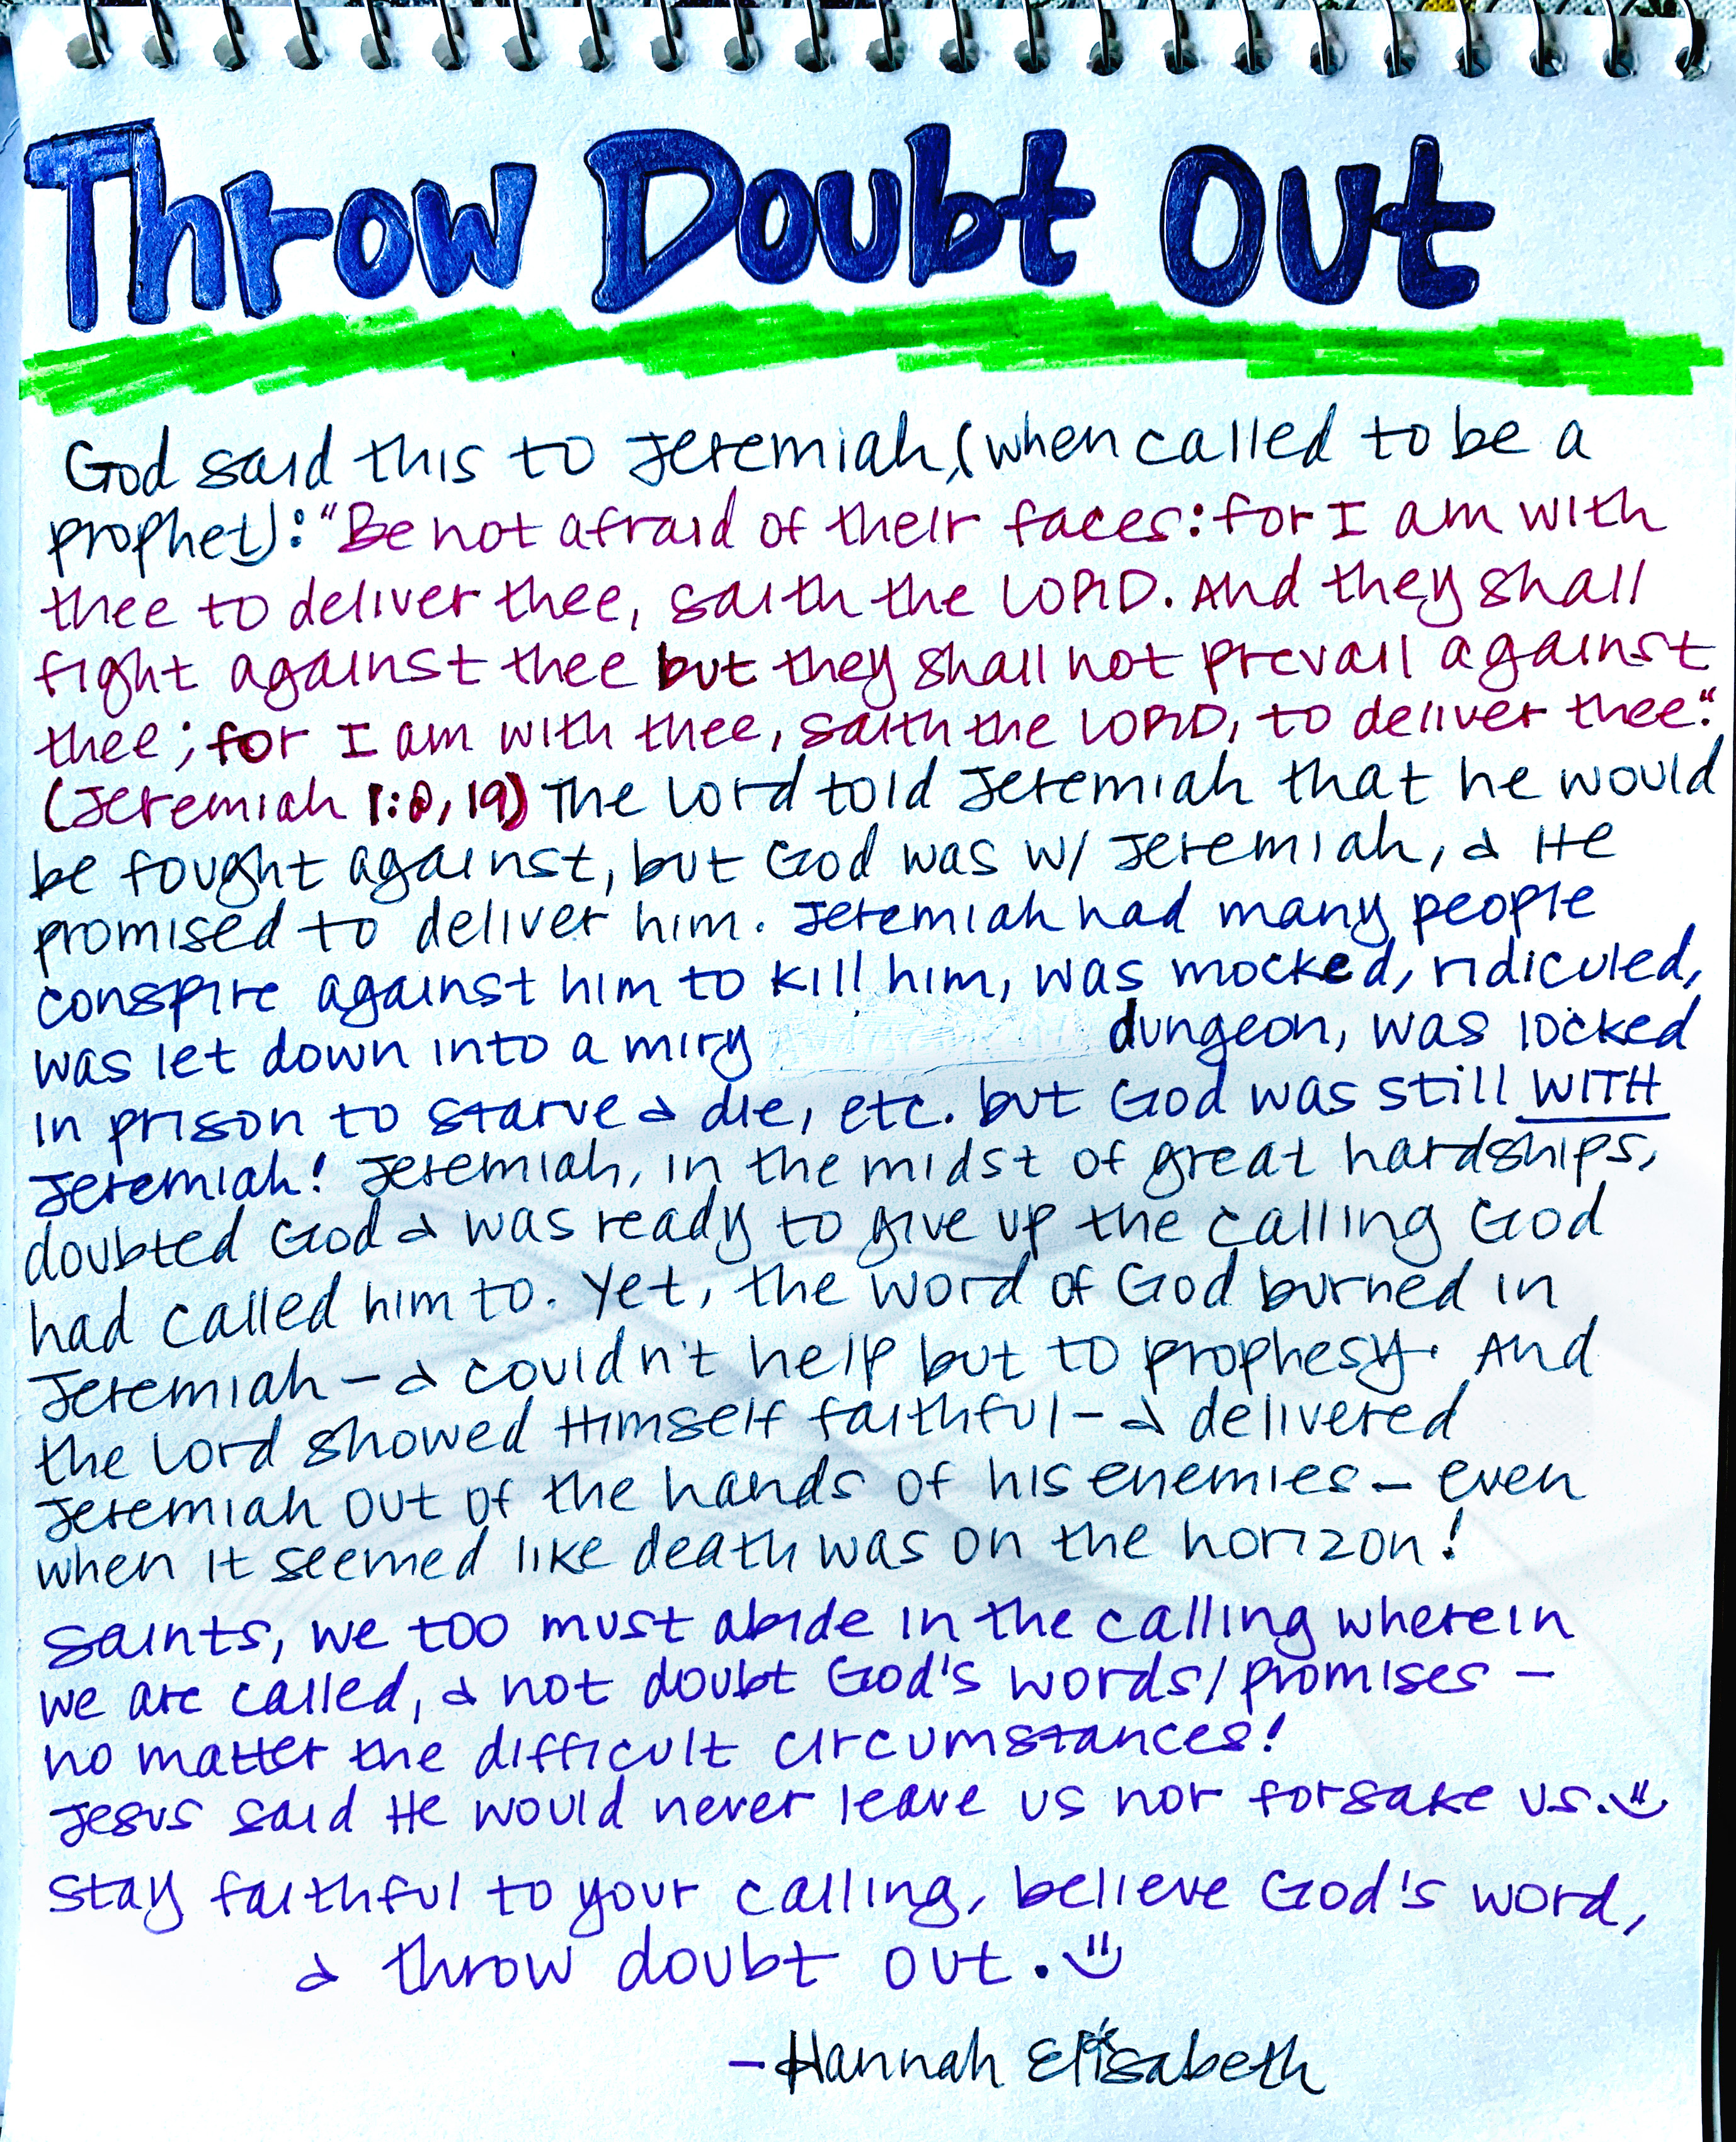 Throw Doubt Out
God said this to Jeremiah, (when called to be a
prophet): "Be not afraid of their faces: for I am with
thee to deliver thee, saith the LORD. And they shall
fight against thee but they shall not prevail against
thee; for I am with thee, saith the LORD, to deliver thee."
(Jeremiah 1:8, 19) The Lord told Jeremiah that he would
be fought against, but God was w/ Jeremiah, & He
promised to deliver him. Jeremiah had many people
conspire against him to kill him, was mocked, ridiculed,
was let down into a miry dungeon, was locked
in prison to starve & die, etc. but God was still WITH
Jeremiah! Jeremiah, in the midst of great hardships,
doubted God & was ready to give up the calling God
had called him to. Yet, the word of God burned in
Jeremiah - & couldn't help but to prophesy. And
the Lord showed Himself faithful - & delivered
Jeremiah out of the hands of his enemies - even
when it seemed like death was on the horizon!
Saints, we too must abide in the calling wherein
we are called, & not doubt God's words/promises -
no matter the difficult circumstances!
Jesus said He would never leave us nor forsake us. :)
Stay faithful to your calling, believe God's word,
& throw doubt out. :)
- Hannah Elisabeth